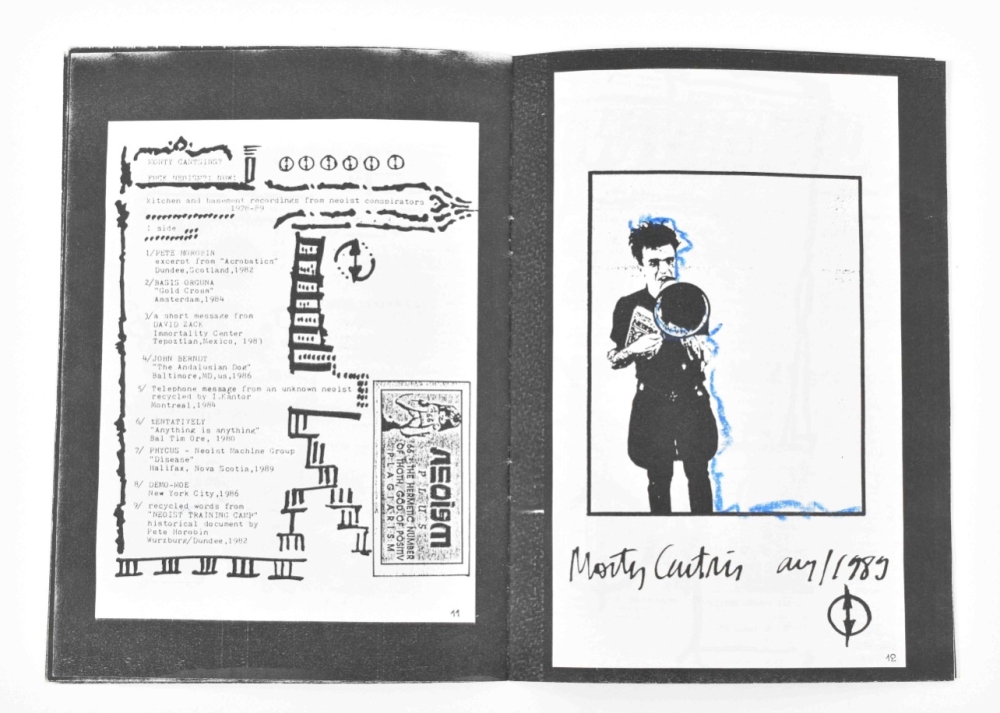 MONTY CANTSINS?
FUCK NEOISTS! NOW!
kitchen and basement recordings from neoist conspirators
1978-89
1 side
1/PETE HOROBIN
excerpt from "Acrobatics"
Dundee,Scotland,1982
2/BASIS ORGUNA
"Gold Cream"
Amsterdam,1984
3/a short message from
DAVID ZACK
Immortality Center
Tepoztlan,Mexico, 1983
4/JOHN BERNDT
"The Andalusian Dog"
Baltimore,MD,us,1986
5/ Telephone message from an unknown neoist
recycled by I.Kantor
Montreal,1984
6/ tENTATIVELY
"Anything is anything"
Bal Tim Ore, 1980
7/ PHYCUS - Neoist Machine Group
"Disease"
Halifax, Nova Scotia,1989
8/ DEMO-MOE
New York City,1986
9/ recycled words from
"NEOIST TRAINING CAMP"
historical document by
Pete Horobin
Wurzburg/Dundee,1982
NEOISM
PLUS
766 - THE HERMETIC NUMBER
OF THOTH, GOD OF POSITIV
PLAGIARISM
11
1989
12